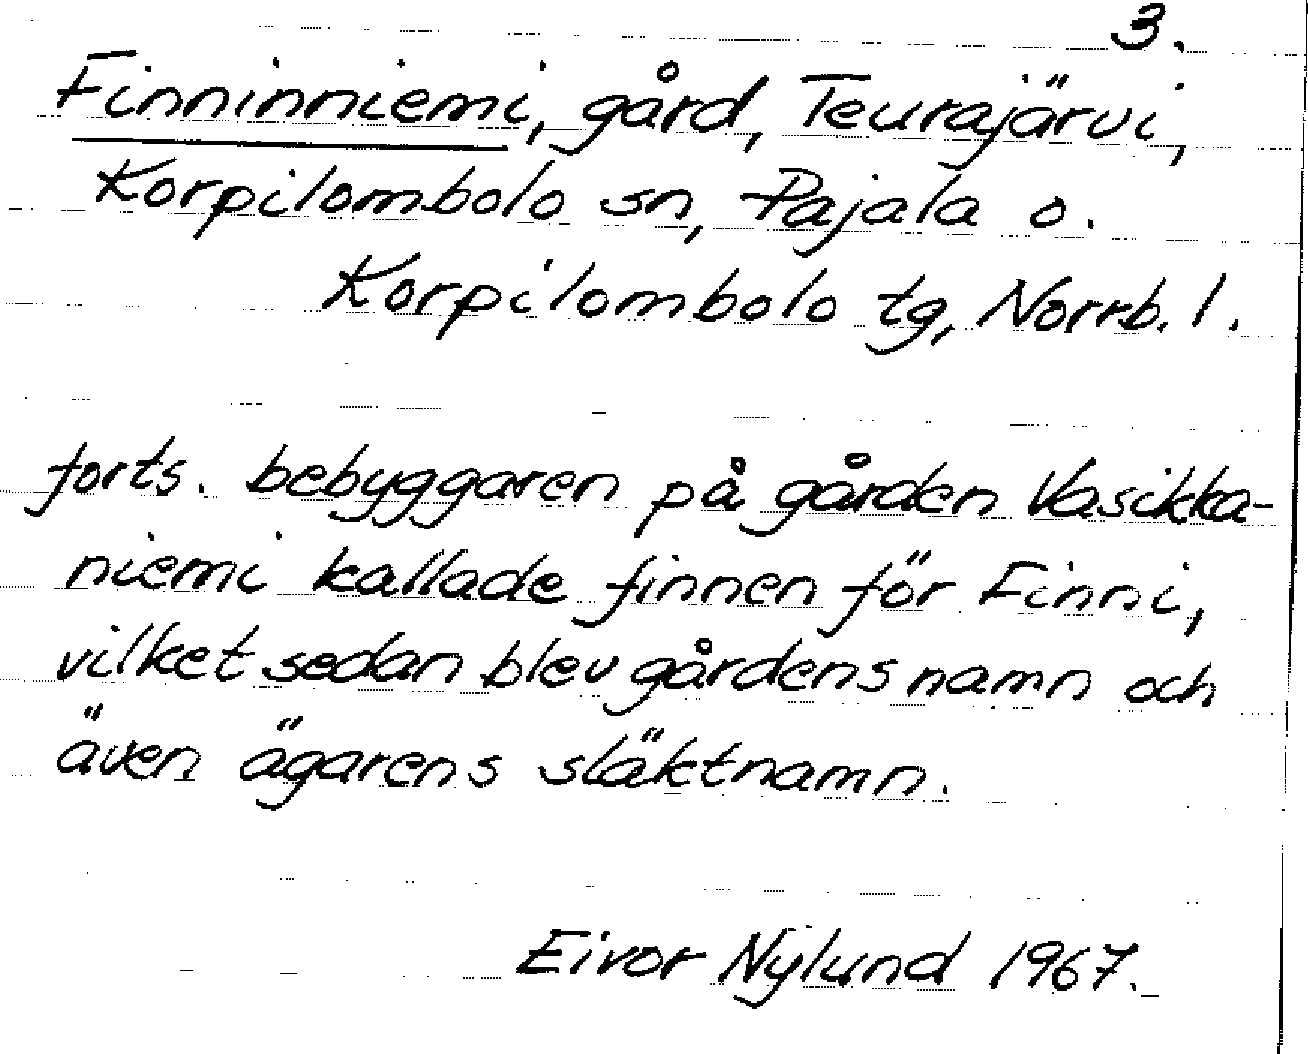 3.
Finninniemi, gård, Teurajärvi,
Korpilombolo sn, Pajala o.
Korpilombolo tg, Norrb. l.
forts. bebyggaren på gården Vasikka-
niemi kallade finnen för Finni,
vilket sedan blev gårdens namn och
även ägarens släktnamn.
Eivor Nylund 1967.